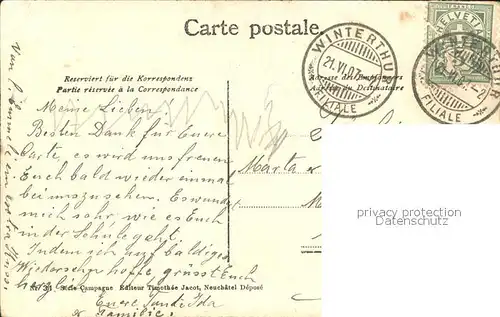 Carte postale.
WINTERTHUR
21.VI.07
FILIALE
HELVETIA
WINTERTHUR
FILIALE
Reserviert für die Korrespondenz
Partie réservée à la Correspondance
Adresse des Empfängers
Adresse du Destinataire
Meine Lieben!
Besten Dank für Euere
Carte, es wird uns freuen
Euch bald wieder einmal
bei uns zu sehen. Es wundert
mich sehr, wie es Euch
in der Schule geht.
Indem ich auf baldiges
Wiedersehn hoffe, grüsst Euch
herzlich
Euere Tante Ida
& Familie.
Marta
privacy protection
DATENSCHUTZ
Nr. 31 Série Campagne Editeur Timothée Jacot, Neuchâtel Déposé